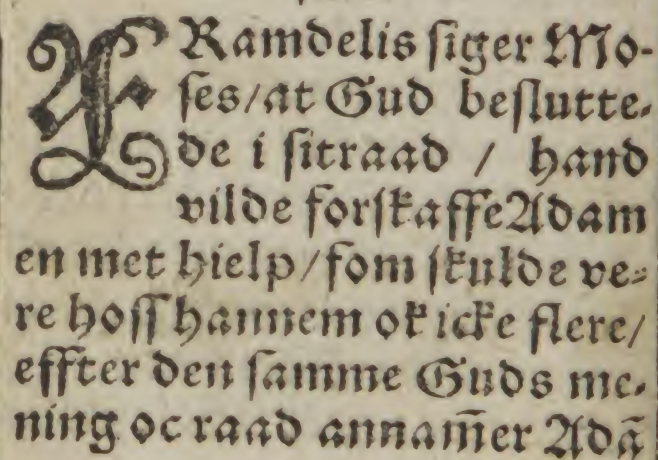 FRamdelis siger Mo-
ses/at Gud beslutte-
de i sitraad / hand
vilde forskaffe Adam
en met hielp/som skulde ve-
re hoss hannem ok icke flere/
effter den samme Guds me-
ning oc raad annam̄er Adā